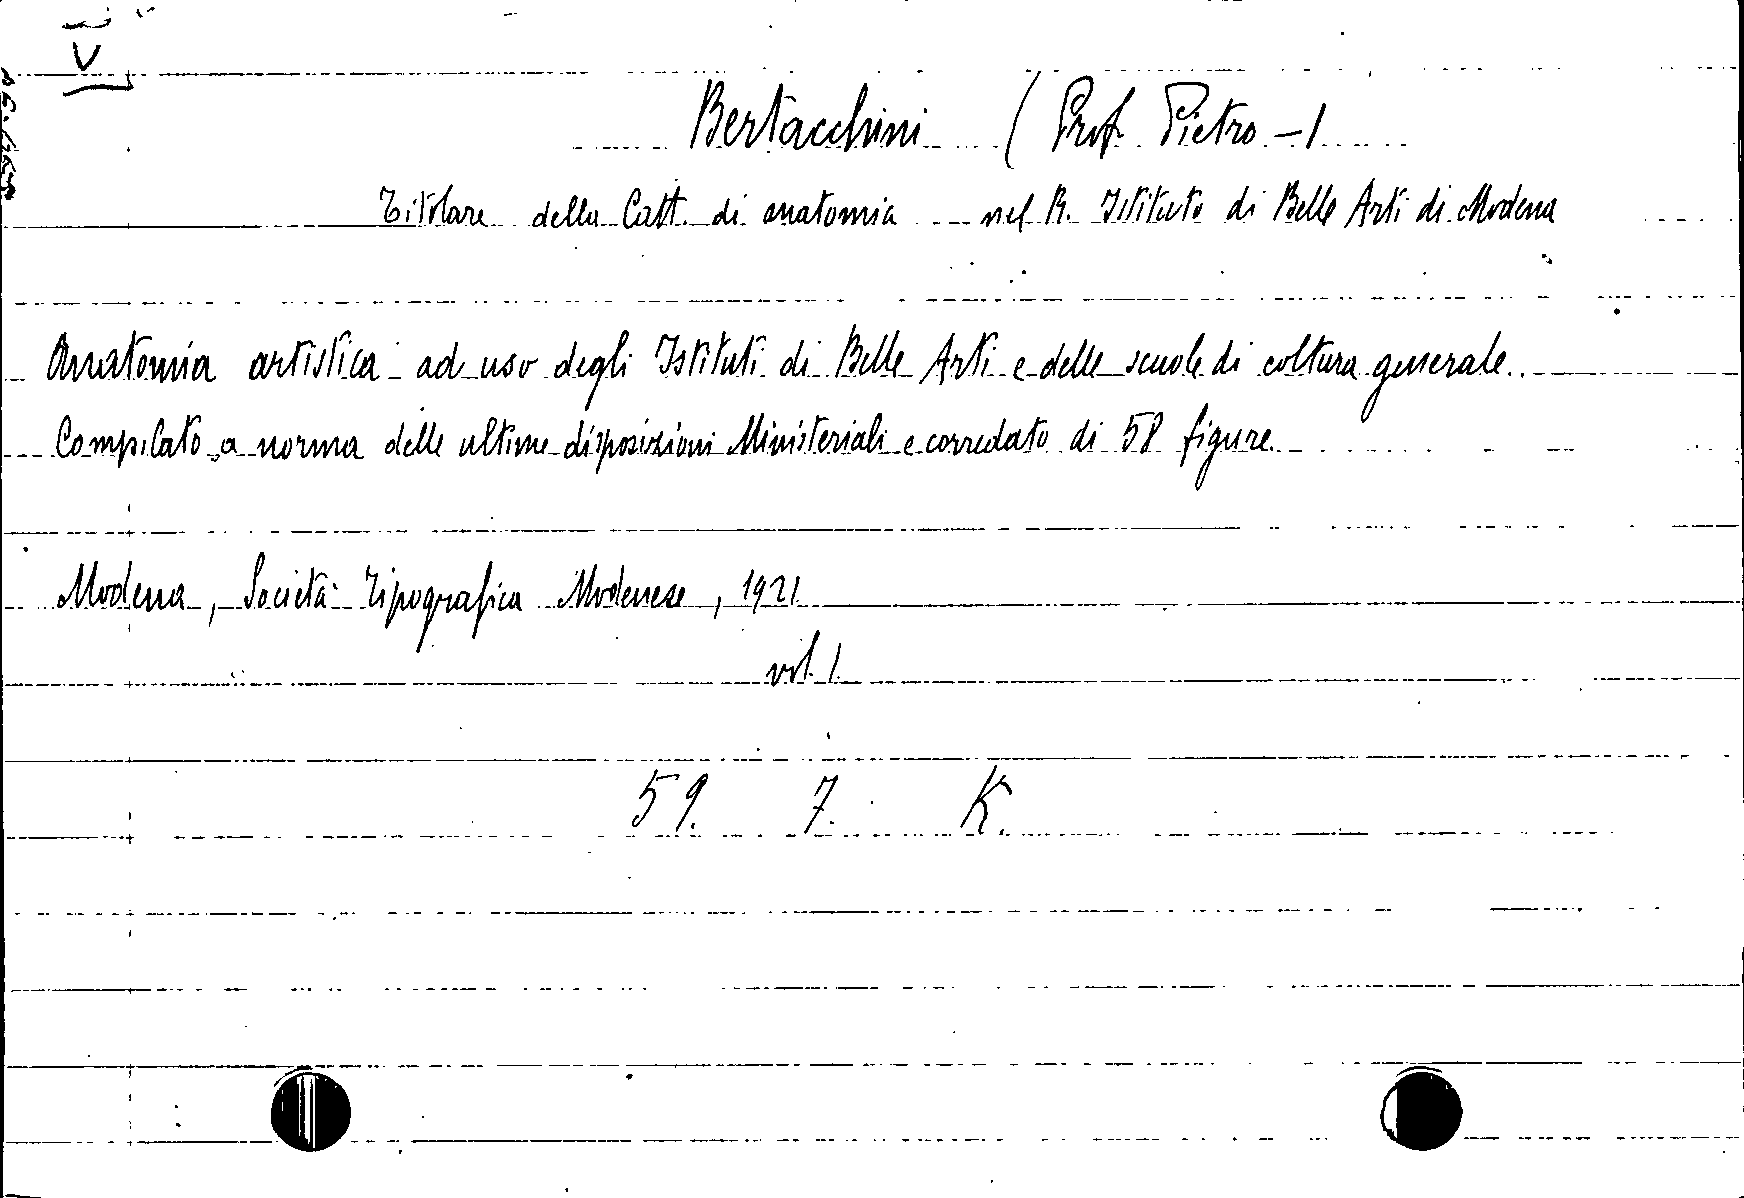 Bertacchini (Prof. Pietro -)
Titolare della Catt. di anatomia nel R. Istituto di Belle Arti di Modena
Anatomia artistica ad uso degli Istituti di Belle Arti e delle scuole di coltura generale.
Compilato a norma delle ultime disposizioni Ministeriali e corredato di 58 figure.
Modena, Società Tipografica Modenese, 1921
vol. 1.
59. 7. K.